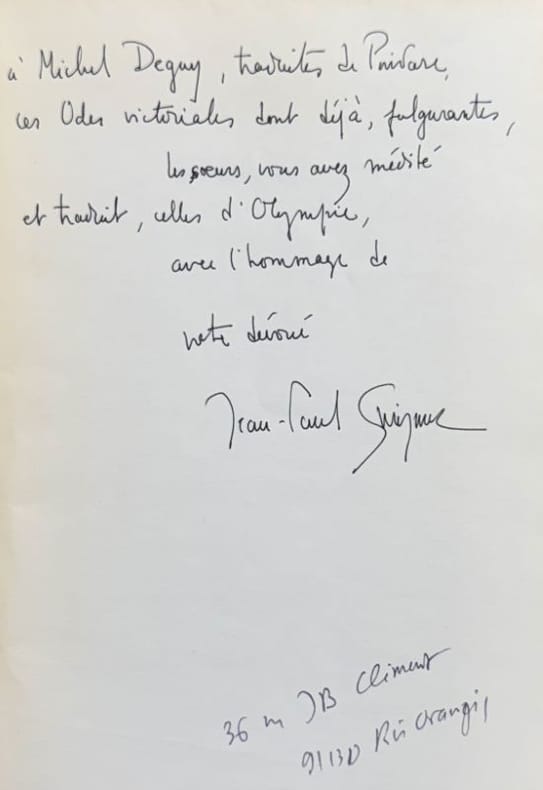 à Michel Deguy, traduites de Pindare,
ces Odes victoriales dont déjà, fulgurantes,
les sœurs, vous avez médité
et traduit, celles d'Olympie,
avec l'hommage de
votre dévoué
Jean-Paul Savignac
36 rue JB Clément
91130 Ris Orangis